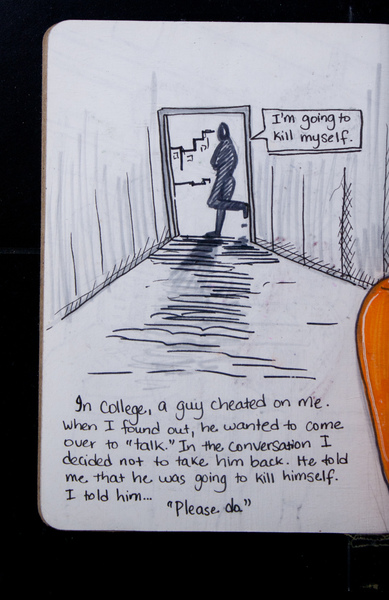 I'm going to
kill myself.
In College, a guy cheated on me.
When I found out, he wanted to come
over to "talk." In the conversation I
decided not to take him back. He told
me that he was going to kill himself.
I told him...
"Please do."